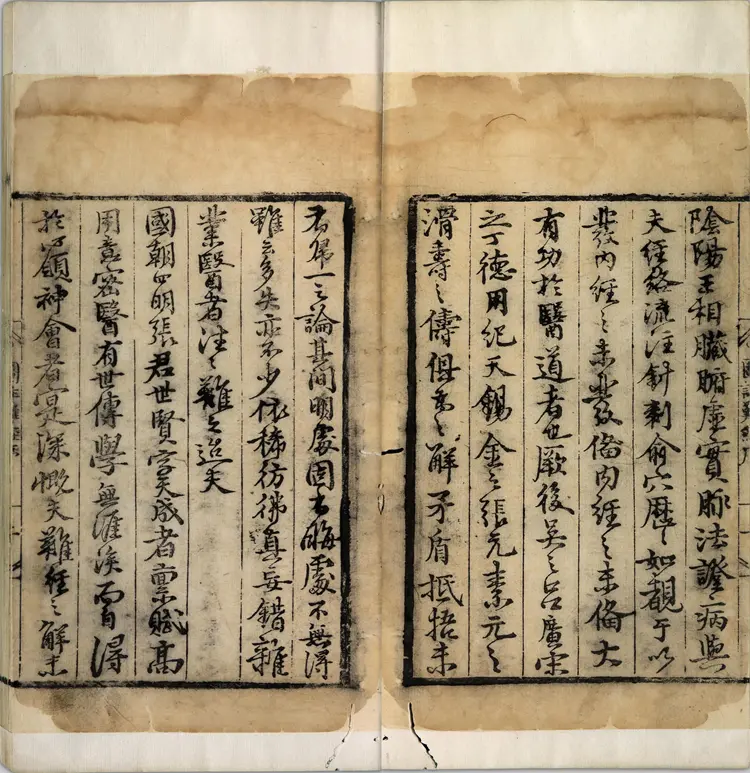 陰陽王相臟腑虛實脉法證病與
夫經絡流注針刺俞穴歷〻如觀于以
發內經之未發備內經之未備大
有功於醫道者也厥後吳之呂廣宋
之丁德用紀天錫金之張元素元之
滑壽之儔俱之解矛盾抵牾未
有歸一之論其間明處固有晦處不無得
雖云多失亦不少依稀彷彿真妄錯雜
業醫者往〻難之迨夫
國朝四明張君世賢成者稟賦高
用意密醫有世傳學無涯涘而得
於心領神會者寔深慨夫難經之解未